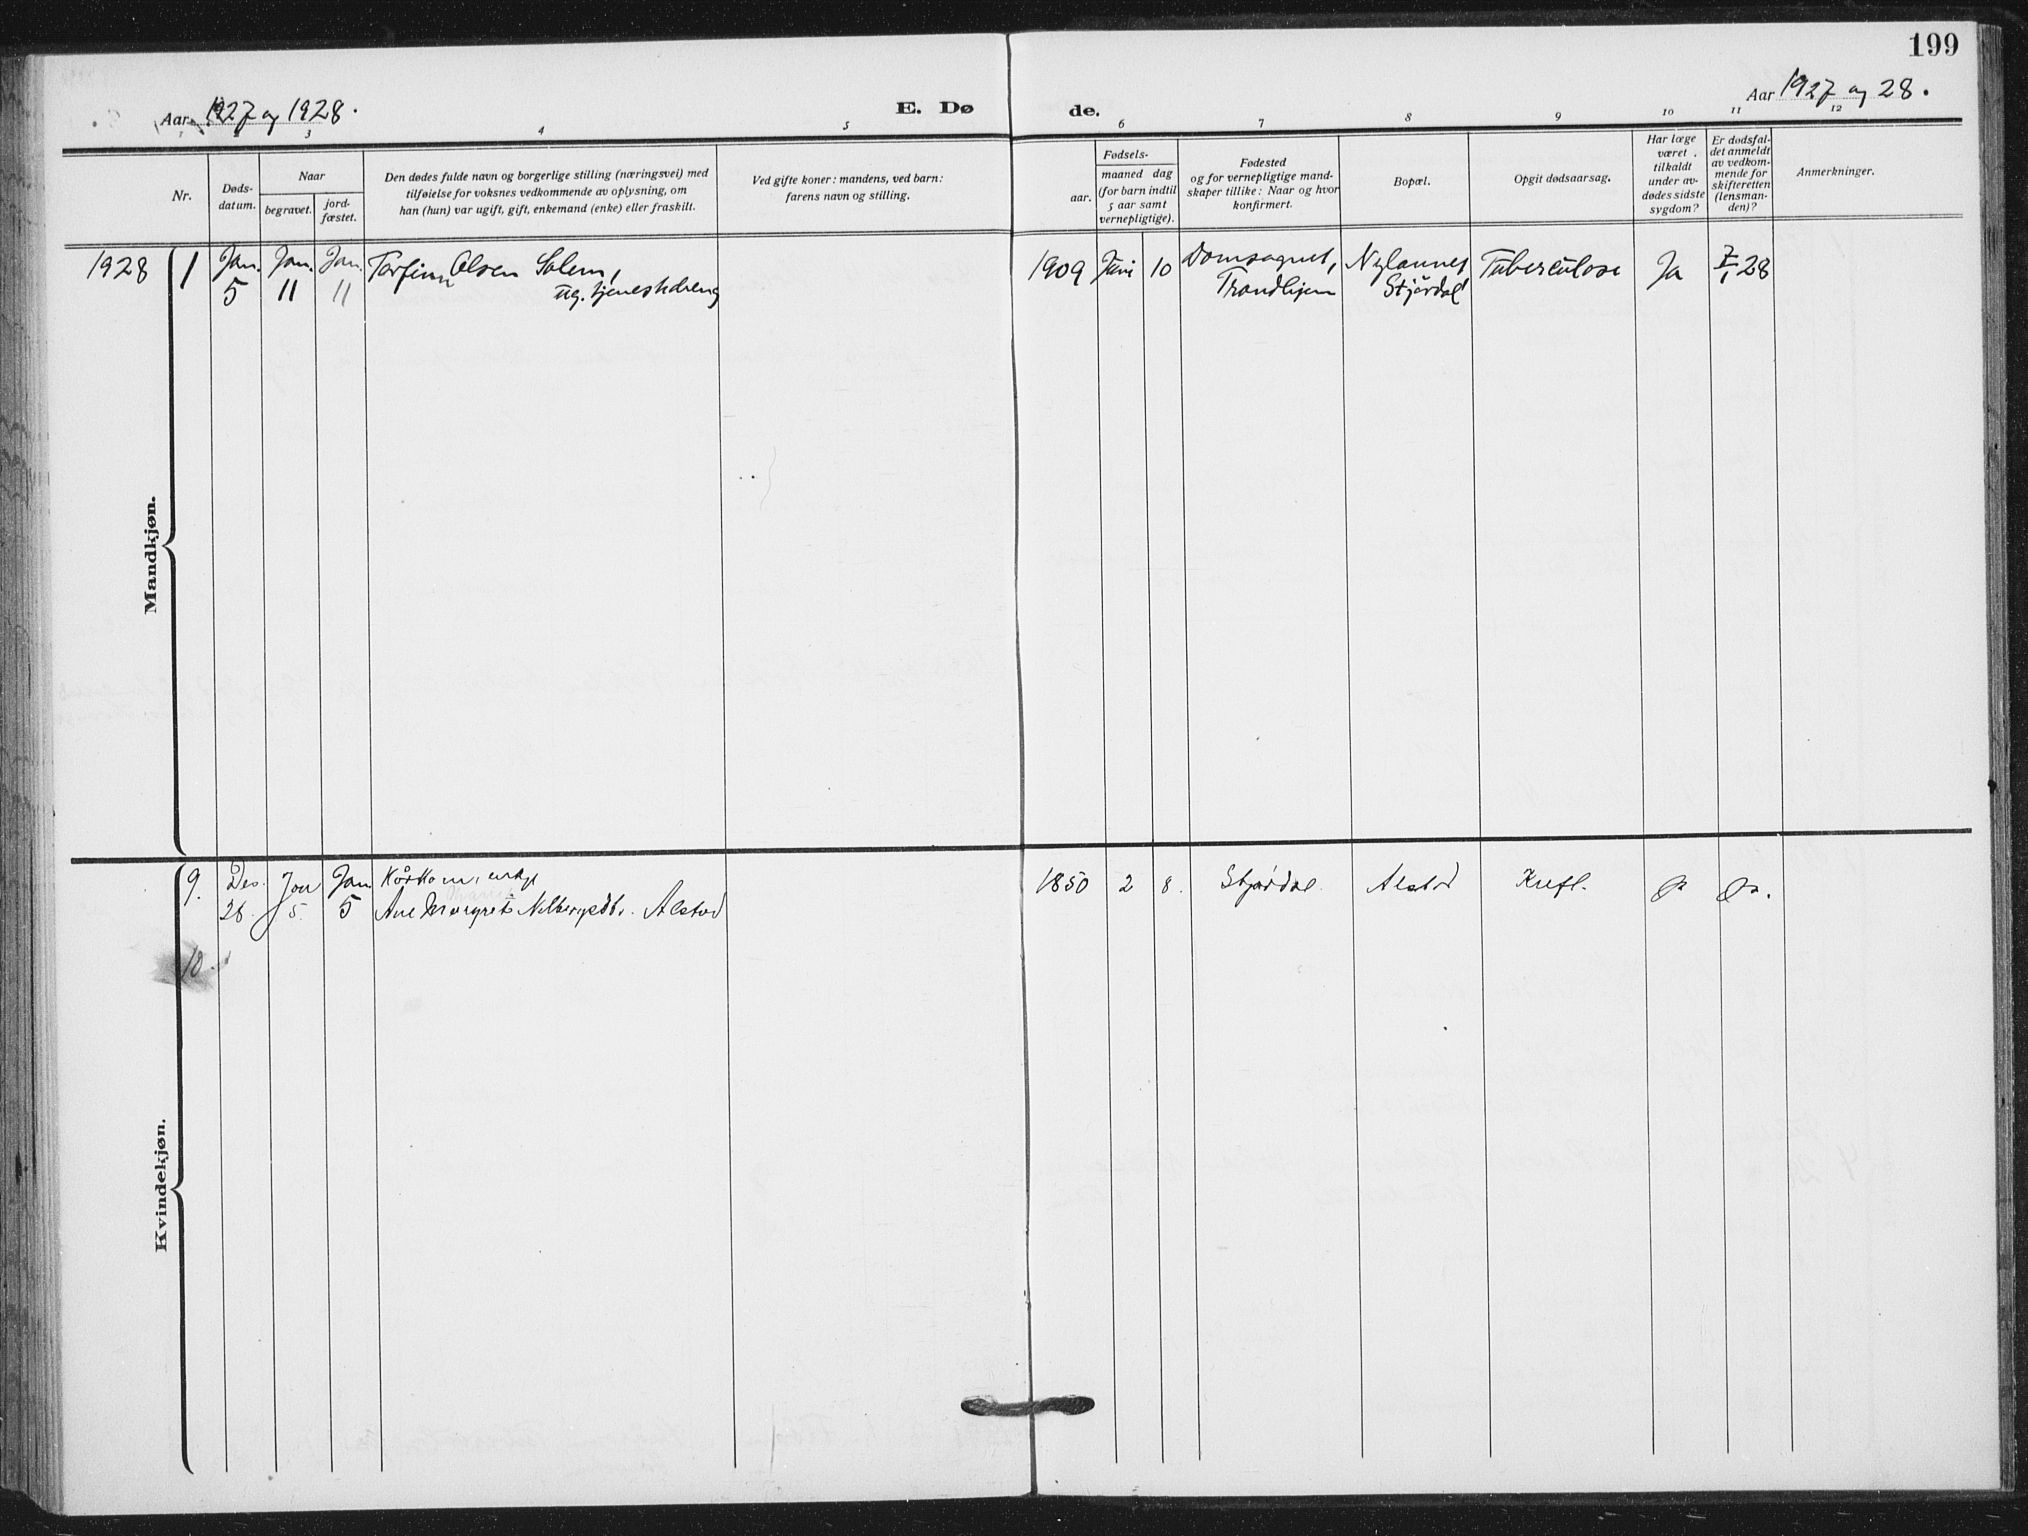 199
Aar 1927 og 1928.
E. Dø de.
Aar 1927 og 28.
1 2 3 4 5 6 7 8 9 10 11 12
Nr.
Døds-
datum.
Naar
begravet.
jord-
fæstet.
Den dødes fulde navn og borgerlige stilling (næringsvei) med
tilføielse for voksnes vedkommende av oplysning, om
han (hun) var ugift, gift, enkemand (enke) eller fraskilt.
Ved gifte koner: mandens, ved barn:
farens navn og stilling.
Fødsels-
aar.
maaned dag
(for barn indtil
5 aar samt
vernepligtige).
Fødested
og for vernepligtige mand-
skaper tillike: Naar og hvor
konfirmert.
Bopæl.
Opgit dødsaarsag.
Har læge
været
tilkaldt
under av-
dødes sidste
sygdom?
Er dødsfal-
det anmeldt
av vedkom-
mende for
skifteretten
(lensman-
den)?
Anmerkninger.
Mandkjøn.
1928 1 Jan. Jan. Jan. Torfinn Olsen Solem, 1909 Juni 10 Domsognet, Tuberculose Ja 28
5 11 11 ug. tjenestdreng Trondhjem Stjørdal
Kvindekjøn.
9. Des. Jan Jan Kårkone, enke 1850 2 8. Stjørdal Alstad Kreft.
26. 5. 5 Ane Margret Alstad
10.